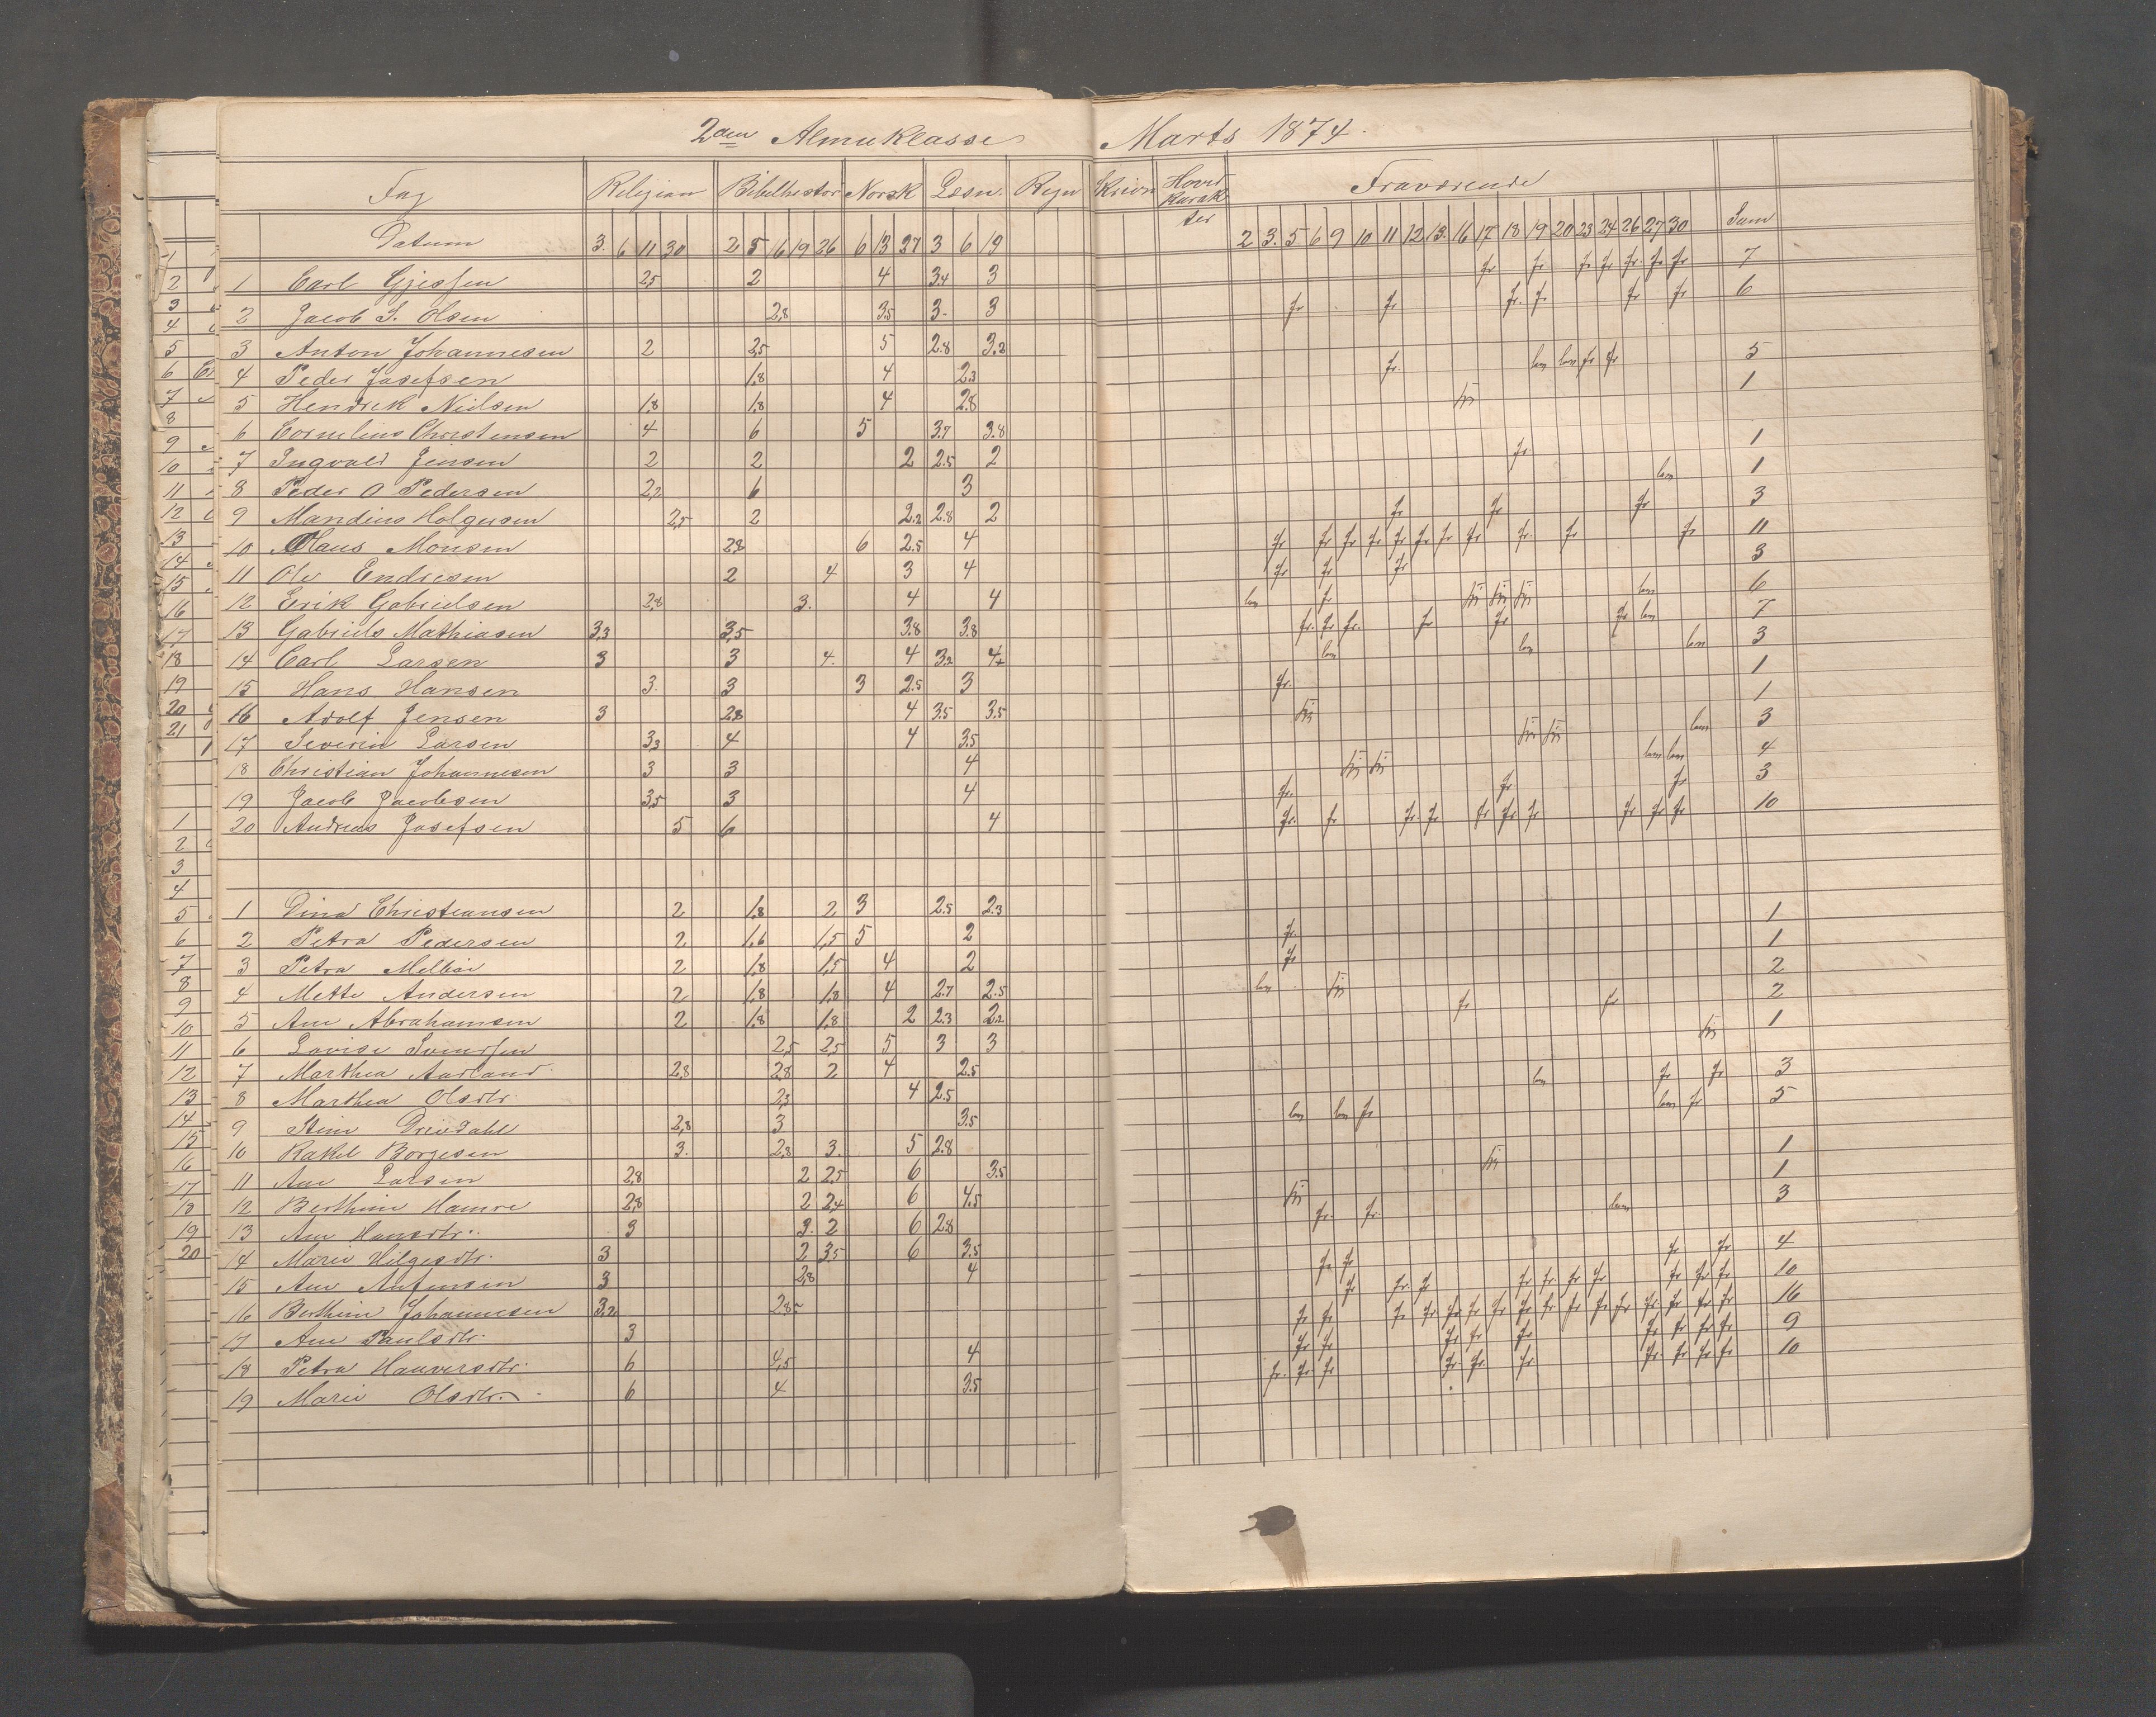 2den Almueklasse Marts 1874.
Fag Religion Bibelhistor Norsk Læsn. Regn Skrivn Hoved Karakter Fraværende Sum
Datum 3. 6 11 30 2 5 16 19 26 6 13 27 3 6 19 2 3. 5 6 9 10 11 12 13. 16 17 18 19 20 23 24 26 27 30
1 Carl Gjessen 2,5 2 4 3.4 3 fr fr fr fr fr. fr fr 7
2 Jacob S. Olsen 2,8 3.5 3. 3 fr fr fr. fr fr fr 6
3 Anton Johannesen 2 2,5 5 2.8 3.2
4 Peder Josefsen 1,8 4 2.3 fr. fr fr 5
5 Hendrik Nielsen 1,8 1,8 4 2.8 1
6 Cornelius Christensen 4 6 5 3.7 3.8
7 Ingvald Jensen 2 2 2 2.5 2 fr 1
8 Peder O Pedersen 2,2 6 3 1
9 Mandius Holgersen 2,5 2 2.2 2.8 2 fr fr fr 3
10 Olaus Monsen 2,8 6 2.5 4 fr fr fr fr fr fr fr fr fr. fr fr 11
11 Ole Endresen 2 4 3 4 fr fr fr 3
12 Erik Gabrielsen 2,8 3. 4 4 fr 6
13 Gabriels Mathiasen 3,3 3,5 3.8 3.8 fr. fr fr. fr fr fr 7
14 Carl Larsen 3 3 4. 4 3.2 4+ 3
15 Hans Hansen 3. 3 3 2.5 3 fr. 1
16 Adolf Jensen 3 2,8 4 3.5 3.5 1
17 Severin Larsen 3,3 4 4 3.5 3
18 Christian Johannesen 3 3 4 4
19 Jacob Jacobsen 3,5 3 4 fr. fr fr 3
20 Andreas Josefsen 5 6 4 fr. fr fr. fr fr fr fr fr fr fr 10
1 Dina Christiansen 2 1,8 2 3 2.5 2.3 1
2 Petra Pedersen 2 1,6 1,5 5 2 fr. 1
3 Petra Melbøe 2 1,8 1,5 4 2 fr 2
4 Mette Andersen 2 1,8 1,8 4 2.7 2.5 2
5 Ane Abrahamsen 2 1,8 1,8 2 2.3 2.2 fr fr 1
6 Lovise Svendsen 2,5 2,5 5 3 3
7 Marthea Aarland 2,8 2,8 2 4 2.5 fr fr 3
8 Marthea Olsdtr. 2,3 4 2.5 fr fr 5
9 Stine Dreidahl 2,8 3 3.5
10 Rakel Borgesen 3. 2,8 3. 5 2.8 1
11 Ane Larsen 2,8 2 2,5 6 3.5 1
12 Berthine Hamre 2,8 2 2,4 6 4.5 3
13 Ane Hansdtr. 3 3. 2 6 2.8 fr. fr.
14 Marie Hilgesdtr. 3 2 3,5 6 3.5 fr fr fr fr 4
15 Ane Anfinsen 3 2,8 4 fr fr. fr fr fr. fr fr fr fr fr 10
16 Berthine Johannesen 3,2 2,8 16
17 Ane Paulsdtr. 3 fr fr fr fr fr fr fr fr fr 9
18 Petra Hauversdtr. 6 4,5 4 fr. fr. fr fr. fr. fr fr. fr fr fr 10
19 Marie Olsdtr. 6 4 3.5